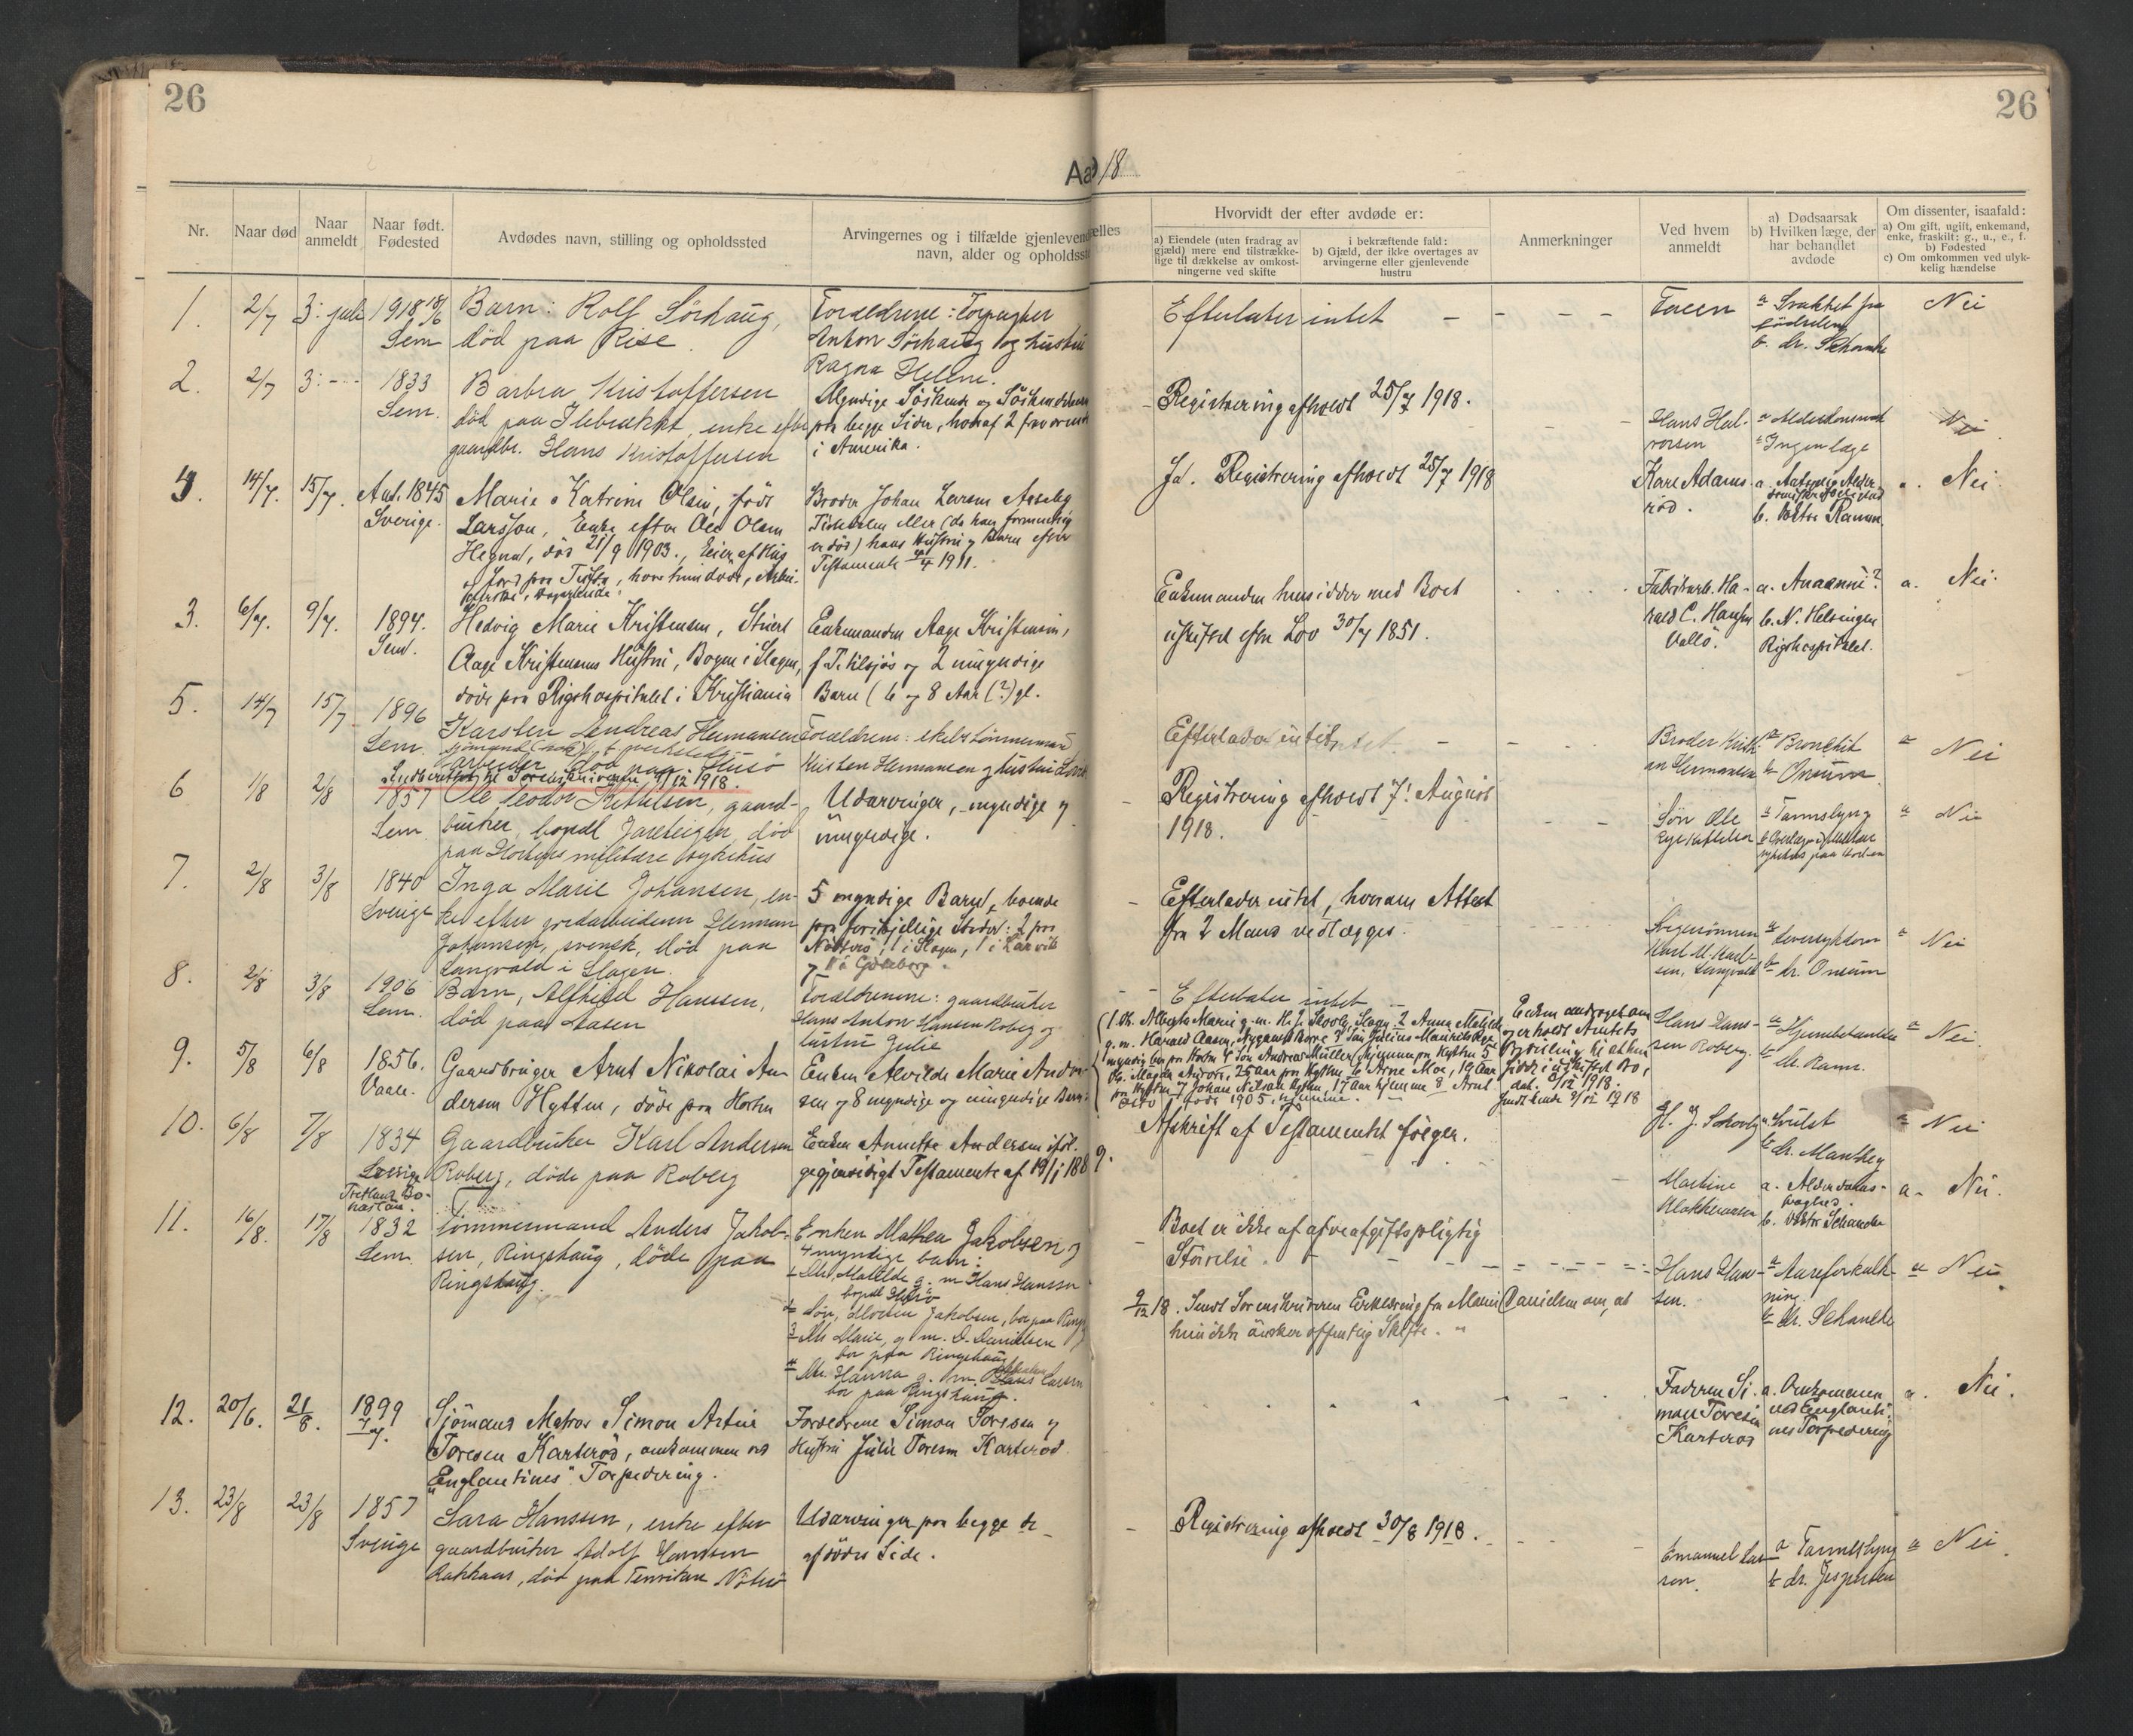 26
26
Aa 18
Nr.
Naar død
Naar anmeldt
Naar født. Fødested
Avdødes navn, stilling og opholdssted
Arvingernes og i tilfælde gjenlevend
navn, alder og opholdsste
ælles
Hvorvidt der efter avdøde er:
a) Eiendele (uten fradrag av
gjæld) mere end tilstrække-
lige til dækkelse av omkost-
ningerne ved skifte
i bekræftende fald:
b) Gjæld, der ikke overtages av
arvingerne eller gjenlevende
hustru
Anmerkninger
Ved hvem
anmeldt
a) Dødsaarsak
b) Hvilken læge, der
har behandlet
avdøde
Om dissenter, isaafald:
a) Om gift, ugift, enkemand,
enke, fraskilt: g., u., e., f.
b) Fødested
c) Om omkommen ved ulyk-
kelig hændelse
1. 2/7 3: juli 1918 18/6 Sem
Barn: Rolf Sörhaug,
död paa Rise.
Forældrene:
Anton Sörhaug og hustru
Ragna Helene.
Efterlater intet
Faren
a Svakhet fra
fødselen
b. dr.
Nei
2. 2/7 3: 1833 Sem.
Barbra Kristoffersen
död paa Ilebrække, enke efter
gaardbr. Hans Kristoffersen
Myndige Söskende og Söskendebörn
paa begge Sider, hvoraf 2 fraværende
i Amerika.
Registrering afholdt 25/7 1918.
Hans Hal-
vorsen
a Alderdomssvak
b Ingen læge
Nei
4. 14/7. 15/7. 1845 Sverige.
Marie Katrine Olsen, född
Larsson, Enke efter Ole Olsen
Hegnal, død 21/9 1903., Eier af Hus
Broder Johan Larsen
er död) hans Hustru og Barn efter
Testamente 4/4 1911.
Ja. Registrering afholdt 25/7 1918
Kare Adams-
röd.
a.
b. Doktor Ramm.
a. Nei
3. 6/7. 9/7. 1894. Sem.
Hedvig Marie Kristensen, Stuert
Aage Kristensens Hustru, Bogen i Slagen,
døde paa Rigshospitalet i Kristiania
Enkemanden Aage Kristensen,
f. T. tilsjøs og 2 umyndige
Barn (6 og 8 Aar (?) gl.
Enkemanden hensidder med Boet
uskiftet efter Lov 30/7 1851.
Fabrikarb. Ha-
rald C. Hansen
Vallö.
a. Anæmi?
b. N. Helsingen
Rigshospitalet.
a. Nei.
5. 14/7 15/7 1896 Sem.
Karsten Andreas Hermansen
arbeider död paa Husö
Indberettet til Sorenskriveren 9/12 1918.
Forældrene: skibstömmermand
Kristen Hermansen og hustru
Efterlader intet
Broder Kristi-
an Hermansen
a Bronchit
b Onsum
a Nei
6 1/8 2/8 1857 Sem.
Ole Teodor Kittilsen, gaard-
bruker, bopæl Jareteigen, död
paa Hortens militære sykehus
Udarvinger, myndige og
umyndige.
Registrering afholdt 7. August
1918.
Sön Ole
Kittilsen
a Tarmslyng
b Overlægen i militære
sykehus paa Horten
a Nei
7. 2/8 3/8 1840 Sverige
Inga Marie Johansen, en-
ke efter jordarbeideren Herman
Johansen, svensk, död paa
Langvald i Slagen.
5 myndige Barn, boende
paa forskjellige Steder: 2 paa
Nötterö, 1 i Slagen, 1 i Larvik
og 1 i Göteborg.
Efterlader intet, hvorom Attest
fra 2 Mand vedlægges.
Svigersönnen
Karl M. Karl-
sen, Langvald
a Leversykdom
b dr. Onsum
a Nei
8. 2/8 3/8 1906 Sem.
Barn, Alfhild Hanssen,
död paa Aasen
Forældrene: gaardbruker
Hans Anton Hansen Roberg og
hustru Julie
Efterlater intet
Hans Hans-
sen Roberg.
a Hjernebetændelse
b dr. Ramm.
a Nei.
9. 5/8 6/8 1856. Vaale.
Gaardbruger Arnt Nikolai An-
dersen Hytten, døde paa Horten
Enken Alvilde Marie Ander-
sen og 8 myndige og umyndige Barn:
(1 Dt. Alberta Marie g. m. H. J. Skovly, Slagen 2 Anna Matilde
g. m. Harald Aasen, Nygaard Borre 3 Sön Julius
myndig bor paa Horten 4 Sön Andreas Müller hjemme paa Hytten 5
Dt. Magda Andrea, 25 aar paa Hytten 6 Arne Moe, 19 aar
paa Hytten 7 Johan Nilsen Hytten, 17 aar hjemme 8 Arnt
Otto født 1905 hjemme.
Enken andraget om
og erholdt Amtets
Bevilling til at hen-
sidde i uskiftet Bo,
dat. 3/12 1918.
Sendt Enke 9/12 1918
H. J. Skovly
a. Svulst
b dr. Manthey
a Nei
10. 6/8 7/8 1834 Sverige
Gaardbruker Karl Andersen
Roberg, døde paa Roberg
Enken Annette Andersen iföl.
gjensidigt Testamente af 19/1 1889.
Afskrift af Testamentet følger.
Martine
a. Alderdoms-
svaghed.
b. Doktor Schanche
a. Nei.
11. 16/8. 17/8 1832 Sem.
Tömmermand Anders Jakob-
sen, Ringshaug, döde paa
Ringshaug.
Enken Mathea Jakobsen og
4 myndige barn:
1 Dtr. Matilde g. m Hans Hanssen
bopæl Husö
2 Sön, Morten Jakobsen, bor paa Rings
3 Dtr Marie, g. m. D. Danielsen
bor paa Ringshaug
4 Dtr. Hanna g. m. Larsen
bor paa Ringshaug.
Boet er ikke af arveafgiftspligtig
Störrelse.
9/12 18. Sendt Sorenskriveren Erklæring fra Marie Danielsen om, at
hun ikke önsker offentlig Skifte.
Hans Han-
sen.
a Aareforkalk-
ning.
b dr. Schanche
a Nei
12. 20/6. 21/8. 1899 7/7.
Sjömand Matros Simon Artur
Toresen Karteröd, omkommen ved
„Englantines" Torpedering.
Forældrene Simon Toresen og
Hustru Julie Toresen Karteröd.
Faderen Si-
mon Toresen
Karteröd
a. Omkommen
ved Englanti-
nes Torpedering
a. Nei.
13. 23/8 23/8 1857 Sverige
Sara Hanssen, enke efter
gaardbruker Adolf Hanssen
Bakkaas, död paa Tensviken Nötterö
Udarvinger paa begge de
afdödes Side.
Registrering afholdt 30/8 1918.
Emanuel Lar-
sen.
a Tarmslyng
b dr. Jespersen
a Nei.